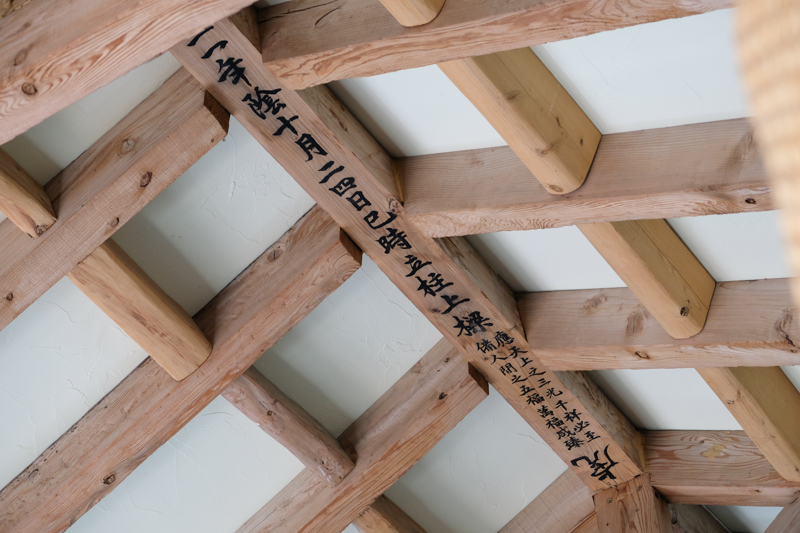 年陰十月二四日巳時立柱上樑
應天上之三光 千祥必至
備人間之五福 萬福咸臻
虎